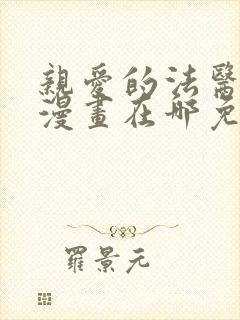 親愛的法醫
漫畫在哪免
羅景元